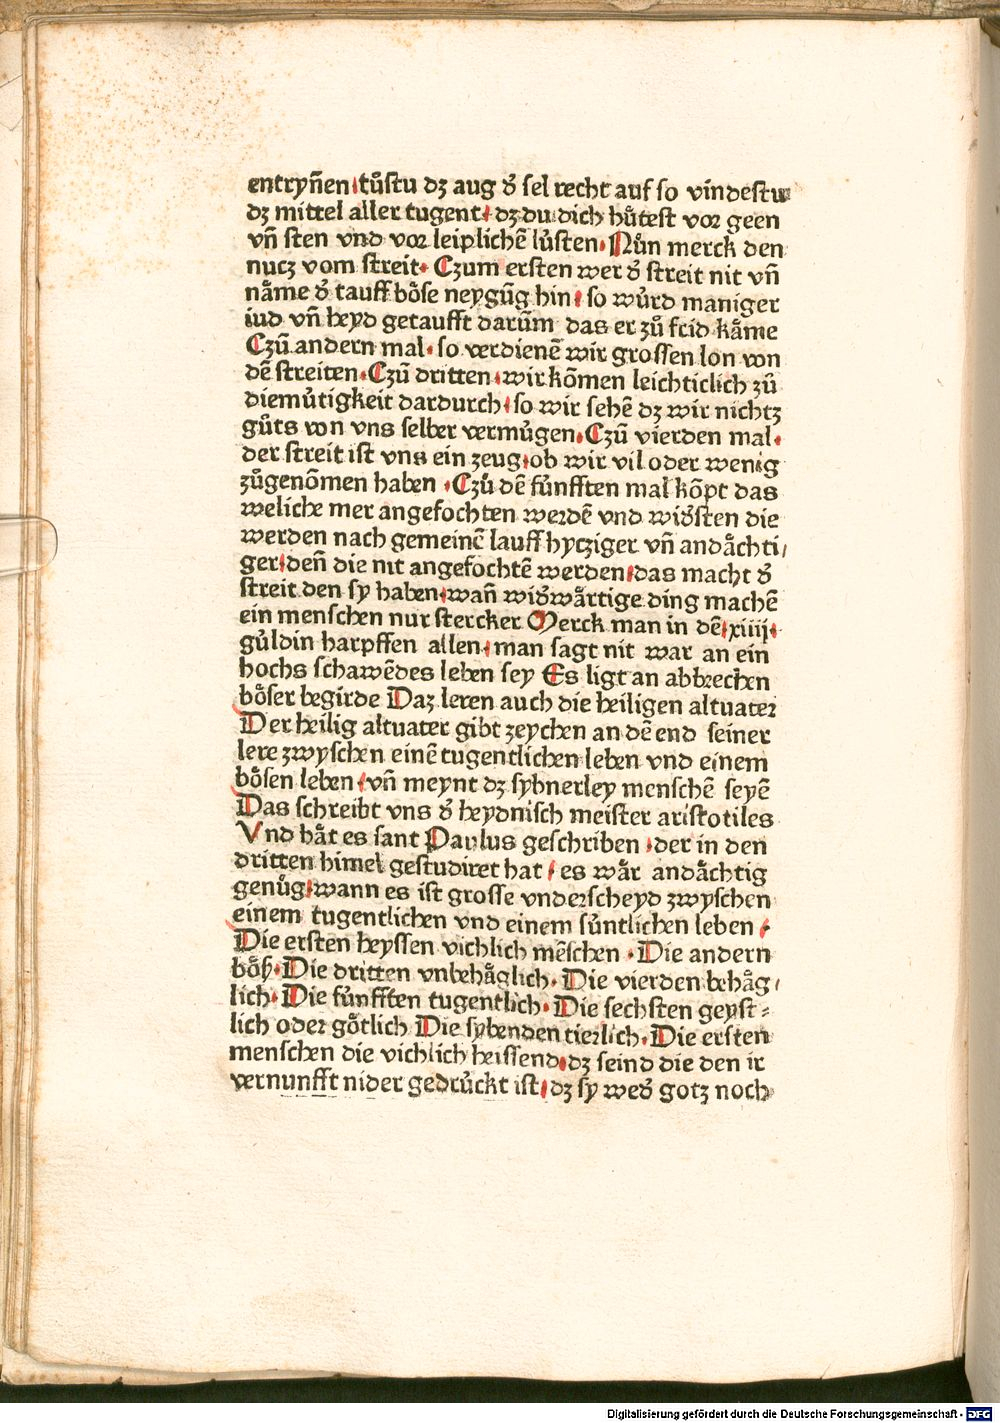 entryn̄en·tůstu dʒ aug d̕ sel recht auf so vindestu
dʒ mittel aller tugent· dʒ du dich hůtest vor geen
vn̄ sten vnd vor leiplichē lůsten· Nůn merck den
nucz vom streit· Czum ersten wer d̕ streit nit vn̄
nåme d̕ tauff böse neygūg hin· so wůrd maniger
iud vn̄ heyd getaufft darūm das er zů frid kåme
Czū andern mal· so verdienē wir grossen lon von
dē streiten· Czū dritten· wir kōmen leichticlich zů
diemůtigkeit dardurch· so wir sehē dʒ wir nichtz
gůts von vns selber vermůgen· Czū vierden mal·
der streit ist vns ein zeug· ob wir vil oder wenig
zůgenōmen haben · Czů dē fůnfften mal kōpt das
weliche mer angefochten werdē vnd wid̕sten die
werden nach gemeinē lauff hytziger vn̄ andåchti/
ger· den̄ die nit angefochtē werden· das macht d̕
streit den sy haben· wan̄ wid̕wårtige ding machē
ein menschen nur stercker Merck man in dē· xiiij·
gůldin harpffen allen· man sagt nit war an ein
hochs schawēdes leben sey Es ligt an abbrechen
böser begirde Daz leren auch die heiligen altuater
Der heilig altuater gibt zeychen an dē end seiner
lere zwyschen einē tugentlichen leben vnd einem
bösen leben · vn̄ meynt dʒ sybnerley menschē seyē
Das schreibt vns d̕ heydnisch meister aristotiles
Vnd håt es sant Paulus geschriben · der in den
dritten himel gestudiret hat · es wår andåchtig
genůg· wann es ist grosse vnderscheyd zwyschen
einem tugentlichen vnd einem sůntlichen leben ·
Die ersten heyssen vichlich mēschen · Die andern
böß· Die dritten vnbehåglich· Die vierden behåg/
lich· Die fůnfften tugentlich· Die sechsten geyst⸗
lich oder götlich Die sybenden tierlich· Die ersten
menschen die vichlich heissend· dʒ seind die den ir
vernunfft nider gedrůckt ist· dʒ sy wed̕ gotz noch
Digitalisierung gefördert durch die Deutsche Forschungsgemeinschaft - DFG